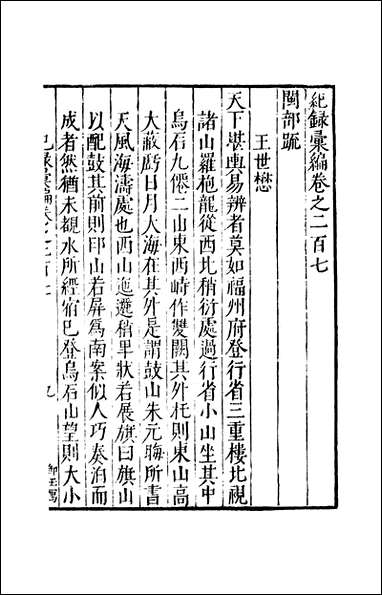 紀録彙編卷之二百七
閩部䟽
王世懋
天下堪輿易辨者莫如福州府登行省三重樓北視
諸山羅抱龍從西北稍衍處過行省小山坐其中
烏石九僊二山東西峙作雙闕其外托則東山高
大蔽虧日月大海在其外是謂鼓山朱元晦所書
天風海濤處也西山迤邐稍卑狀若展旗曰旗山
以配鼓其前則印山若屏爲南案似人巧奏泊而
成者然猶未覩水所經宿已登烏石山望則大小